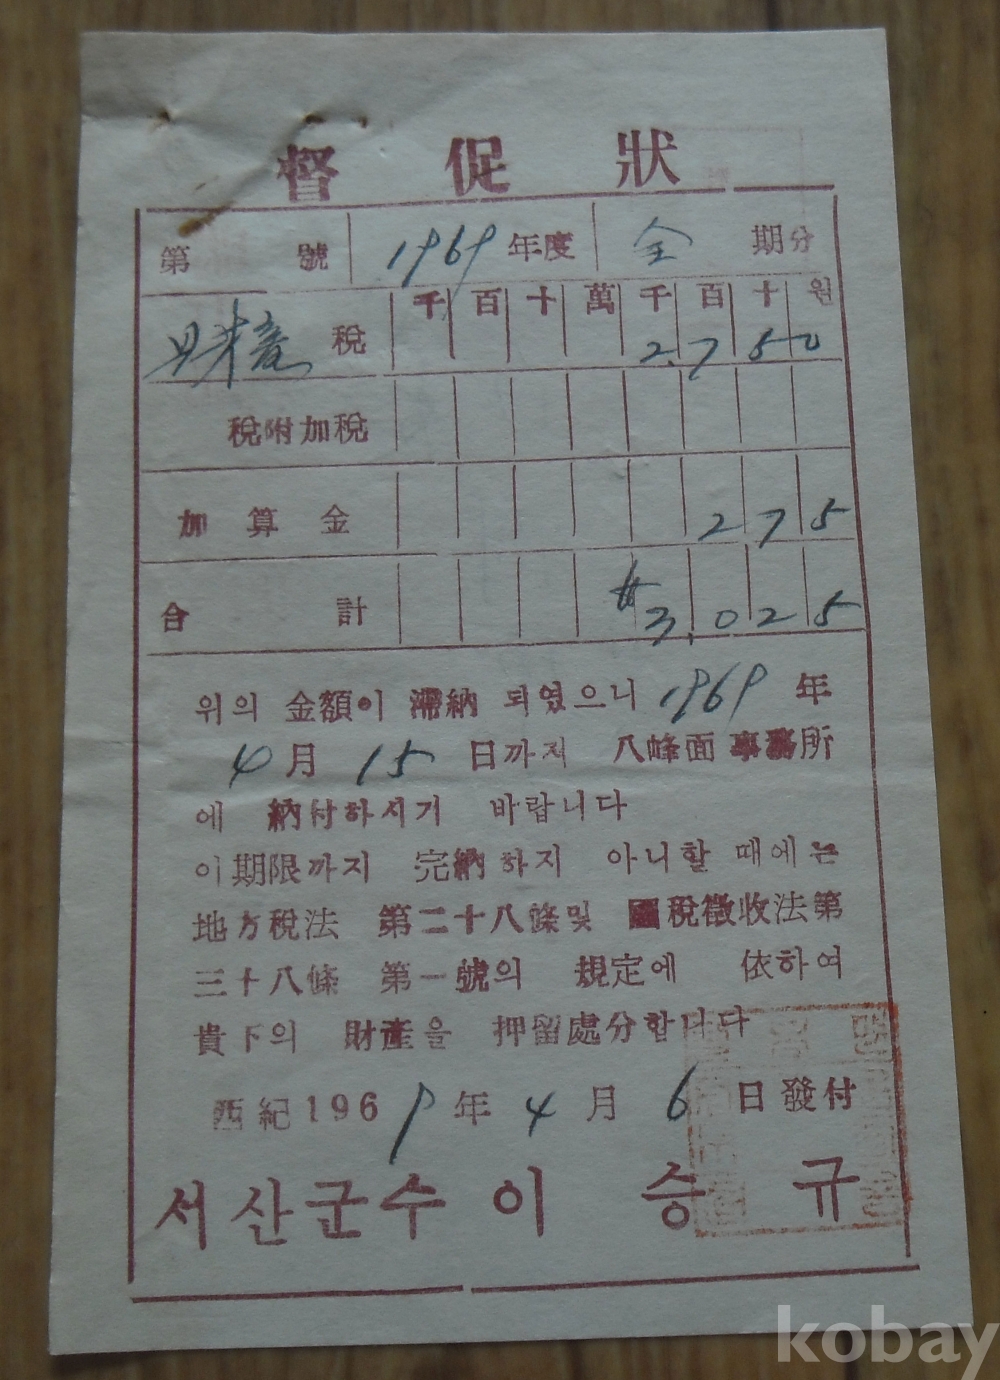 督促狀
第 號 1969 年度 全 期分
千 百 十 萬 千 百 十 원
財産 稅 2,750
稅附加稅
加算金 275
合計 ₩3,025
위의 金額이 滯納 되였으니 1969 年
4 月 15 日까지 八峰面 事務所
에 納付하시기 바랍니다
이 期限까지 完納하지 아니할 때에는
地方稅法 第二十八條 및 國稅徵收法 第
三十八條 第一號의 規定에 依하여
貴下의 財產을 押留處分합니다
西紀 1969 年 4 月 6 日 發付
서산군수 이승규
kobay